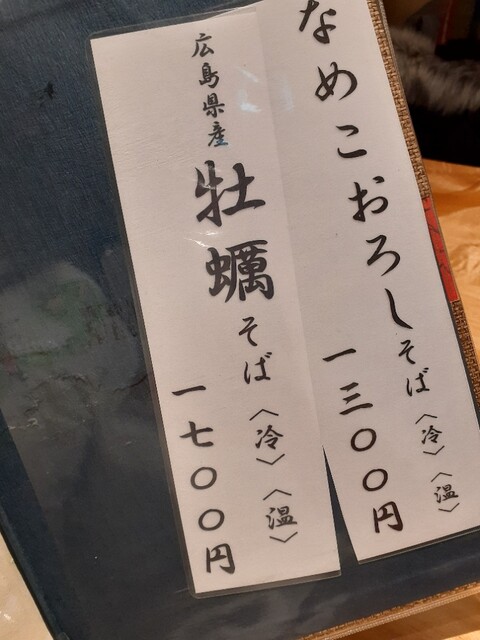 なめこおろしそば〈冷〉〈温〉
一三〇〇円
広島県産
牡蠣そば〈冷〉〈温〉
一七〇〇円